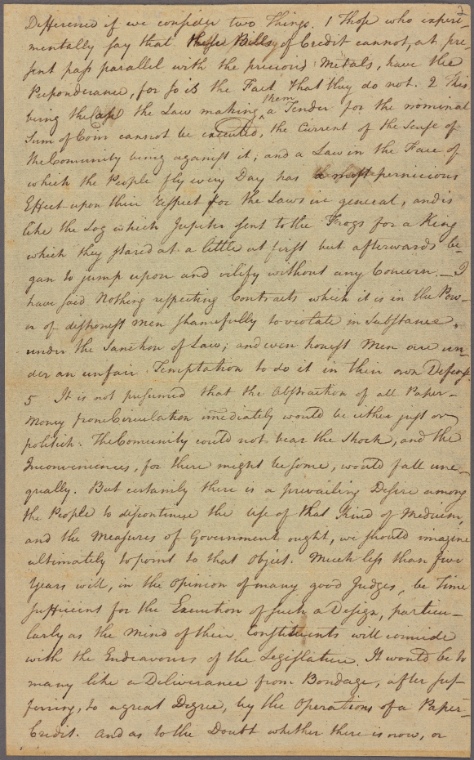 Difference if we consider two Things. 1 Those who experi-
mentally say that these Bills of Credit cannot, at pre-
sent pass parallel with the precious Metals, have the
Preponderance, for so is the Fact that they do not. 2 This
being the Case the Law making them a Tender for the nominal
Sum of Coin cannot be executed, the Current of the Sense of
the Comunity being against it; and a Law in the Face of
which the People fly every Day has a most pernicious
Effect upon their respect for the Laws in general, and is
like the Log which Jupiter sent to the Frogs for a King
which they stared at a little at first but afterwards be-
gan to jump upon and vilify without any Concern. — I
have said Nothing respecting Contracts which it is in the Pow-
er of dishonest men shamefully to violate in Substance,
under the Sanction of Law; and even honest Men are un
der an unfair Temptation to do it in their own Defense
5 It is not presumed that the Abstraction of all Paper-
Money from Circulation imediately would be either just or
politick. The Comunity could not bear the Shock, and the
Inconveniences, for there might be some, would fall une-
qually. But certainly there is a prevailing Desire among
the People to discontinue the use of that Kind of Medium,
and the Measures of Government ought, we should imagine
ultimately to point to that Object. Much less than five
Years will, in the Opinion of many good Judges, be Time
sufficient for the Execution of such a Design, particu-
larly as the Mind of their Constituents will coincide
with the Endeavours of the Legislature. It would be to
many like a Deliverance from Bondage, after suf-
fering, to a great Degree, by the Operations of a Paper-
Credit. And as to the Doubt whether there is now, or